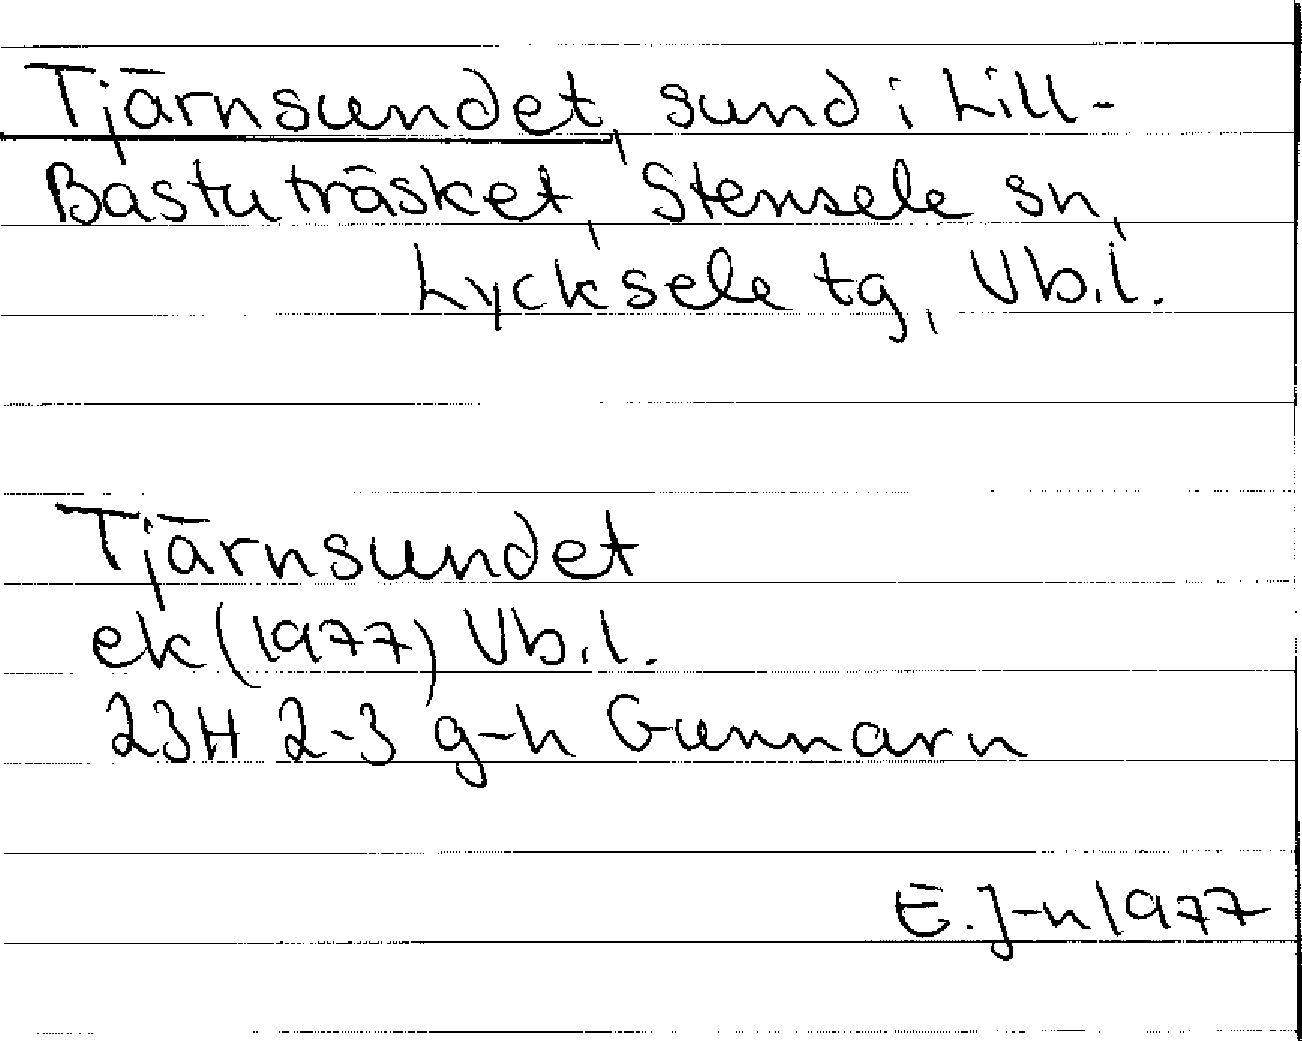 Tjärnsundet, sund i Lill-
Bastuträsket, Stensele sn,
Lycksele tg, Vb.l.
Tjärnsundet
ek (1977) Vb.l.
23H 2-3 g-h Gunnarn
E. J-n 1977